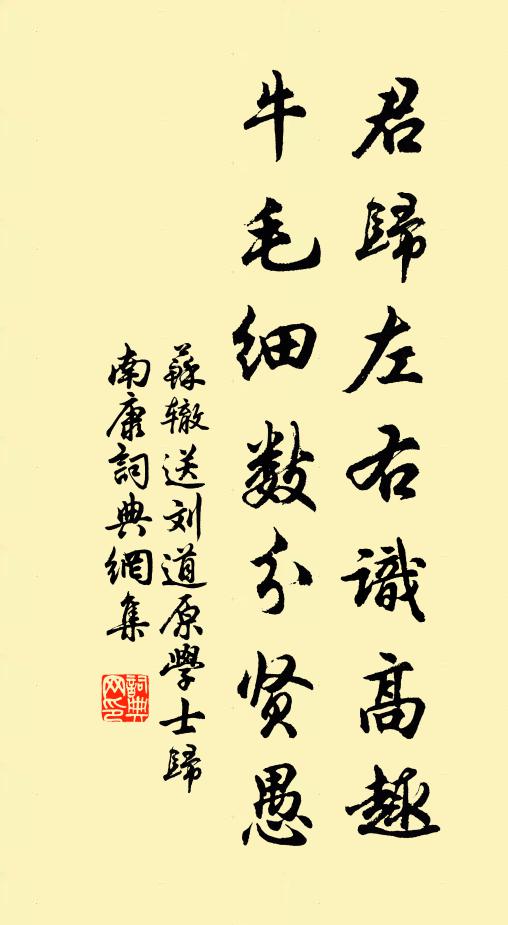 君歸左右識高趣
牛毛细数分贤愚
蘇辙送刘道原學士歸
南康詞典網集
詞典
网印